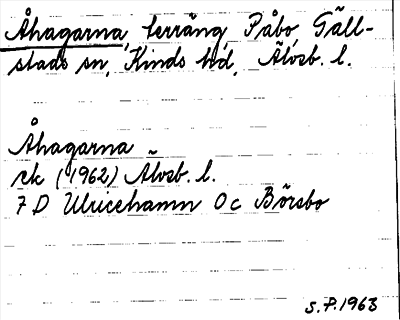 Åhagarna, terräng Påbo, Gäll-
stads sn, Kinds hd, Älvsb. l.
Åhagarna
ek (1962) Älvsb. l.
7 D Ulricehamn 0 c Börsbo
S.P. 1963